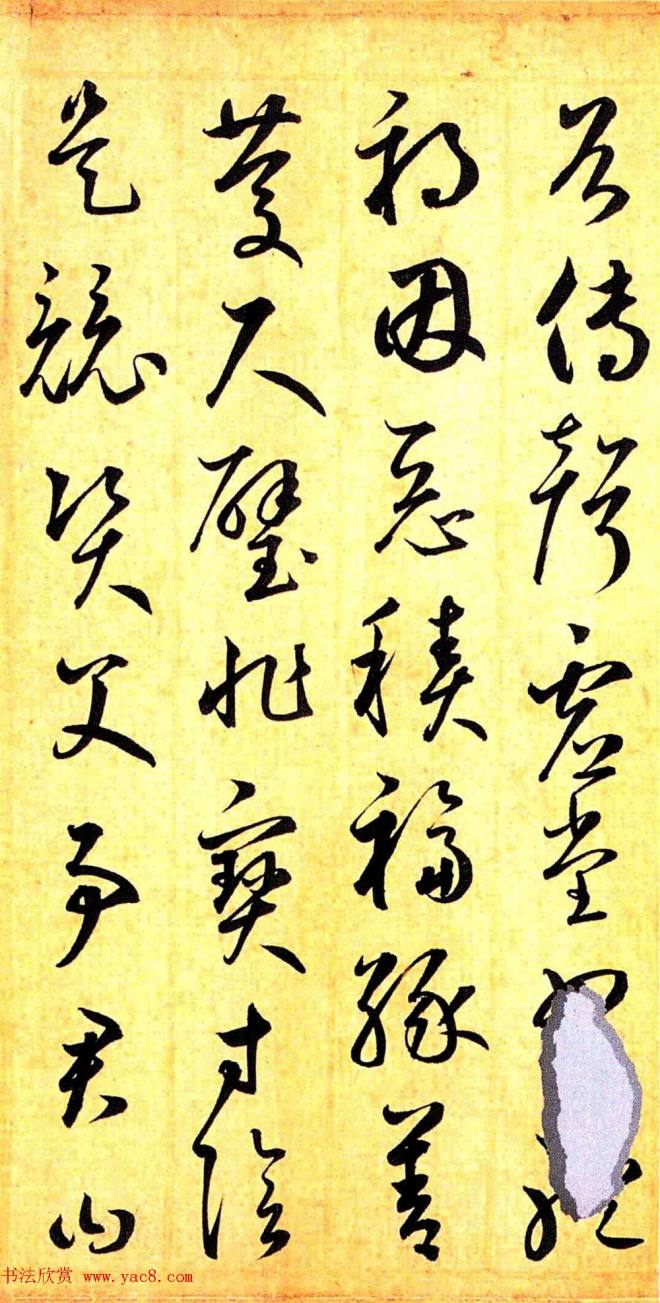 谷傳聲虛堂
禍因惡積福緣善
慶尺璧非寶寸陰
是競資父事君曰
书法欣赏 www.yac8.com